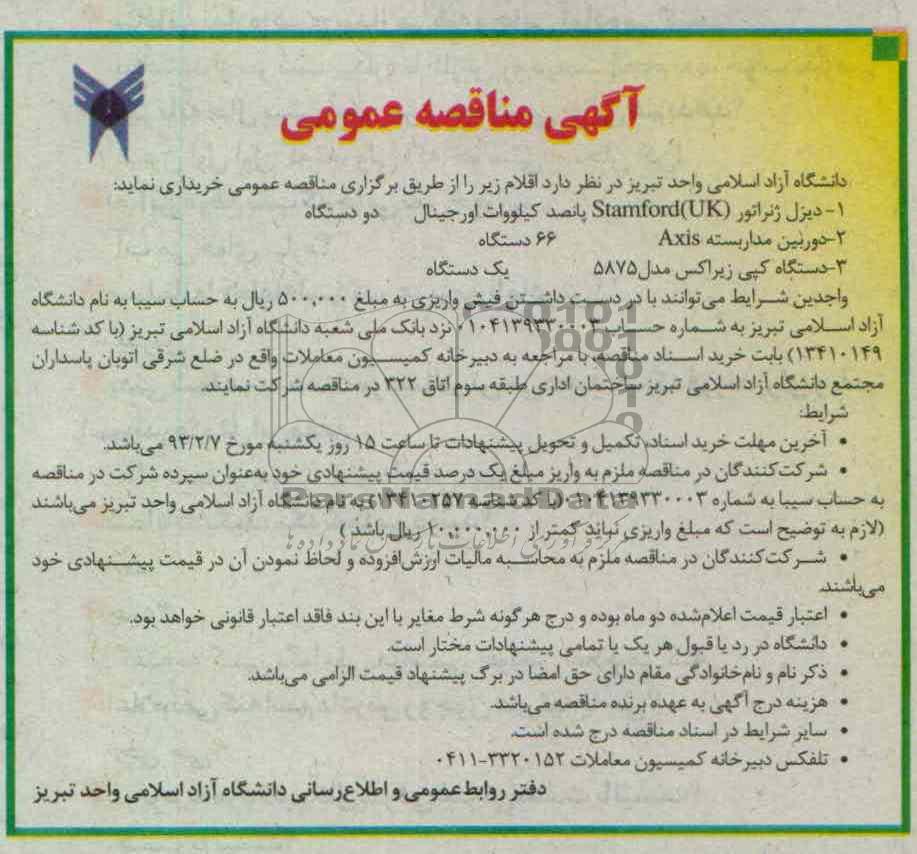 آگهی مناقصه عمومی
دانشگاه آزاد اسلامی واحد تبریز در نظر دارد اقلام زیر را از طریق برگزاری مناقصه عمومی خریداری نماید:
۱- دیزل ژنراتور Stamford(UK) پانصد کیلووات اورجینال دو دستگاه
۲-دوربین مداربسته Axis ۶۶ دستگاه
۳-دستگاه کپی زیراکس مدل۵۸۷۵ یک دستگاه
واجدین شرایط می‌توانند با در دست داشتن فیش واریزی به مبلغ ۵۰۰,۰۰۰ ریال به حساب سیبا به نام دانشگاه
آزاد اسلامی تبریز به شماره حساب ۰۱۰۴۱۳۹۳۳۰۰۰۳ نزد بانک ملی شعبه دانشگاه آزاد اسلامی تبریز (با کد شناسه
۱۳۴۱۰۱۴۹) بابت خرید اسناد مناقصه، با مراجعه به دبیرخانه کمیسیون معاملات واقع در ضلع شرقی اتوبان پاسداران
مجتمع دانشگاه آزاد اسلامی تبریز ساختمان اداری طبقه سوم اتاق ۳۲۲ در مناقصه شرکت نمایند.
شرایط:
• آخرین مهلت خرید اسناد، تکمیل و تحویل پیشنهادات تا ساعت ۱۵ روز یکشنبه مورخ ۹۳/۲/۷ می‌باشد.
• شرکت‌کنندگان در مناقصه ملزم به واریز مبلغ یک درصد قیمت پیشنهادی خود به‌عنوان سپرده شرکت در مناقصه
به حساب سیبا به شماره ۰۱۰۴۱۳۹۳۳۰۰۰۳ (با کد شناسه ۱۳۴۱۰۲۵۷) به نام دانشگاه آزاد اسلامی واحد تبریز می‌باشند
(لازم به توضیح است که مبلغ واریزی نباید کمتر از ۱۰,۰۰۰,۰۰۰ ریال باشد )
• شرکت‌کنندگان در مناقصه ملزم به محاسبه مالیات ارزش‌افزوده و لحاظ نمودن آن در قیمت پیشنهادی خود
می‌باشند.
• اعتبار قیمت اعلام‌شده دو ماه بوده و درج هرگونه شرط مغایر با این بند فاقد اعتبار قانونی خواهد بود.
• دانشگاه در رد یا قبول هر یک یا تمامی پیشنهادات مختار است.
• ذکر نام و نام‌خانوادگی مقام دارای حق امضا در برگ پیشنهاد قیمت الزامی می‌باشد.
• هزینه درج آگهی به عهده برنده مناقصه می‌باشد.
• سایر شرایط در اسناد مناقصه درج شده است.
• تلفکس دبیرخانه کمیسیون معاملات ۳۳۲۰۱۵۲-۰۴۱۱
دفتر روابط عمومی و اطلاع‌رسانی دانشگاه آزاد اسلامی واحد تبریز